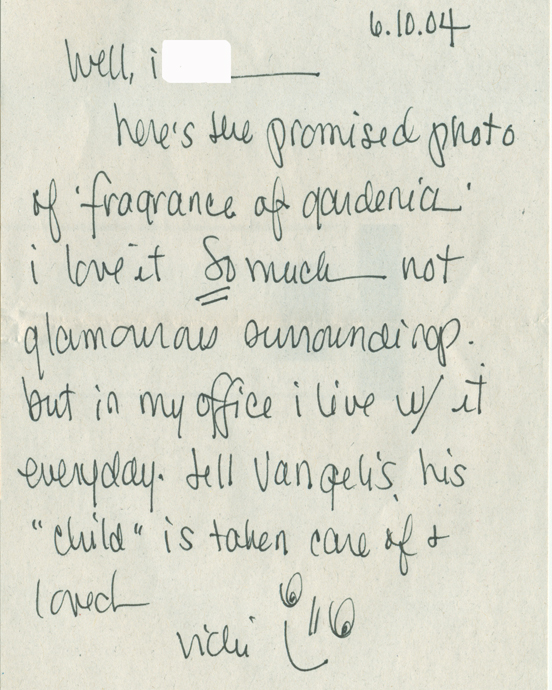 6.10.04
Well, i
here's the promised photo
of 'fragrance of gardenia'
i love it So much not
glamourous surroundings.
but in my office i live w/ it
everyday. tell Vangelis, his
"child" is taken care of &
loved
vicki